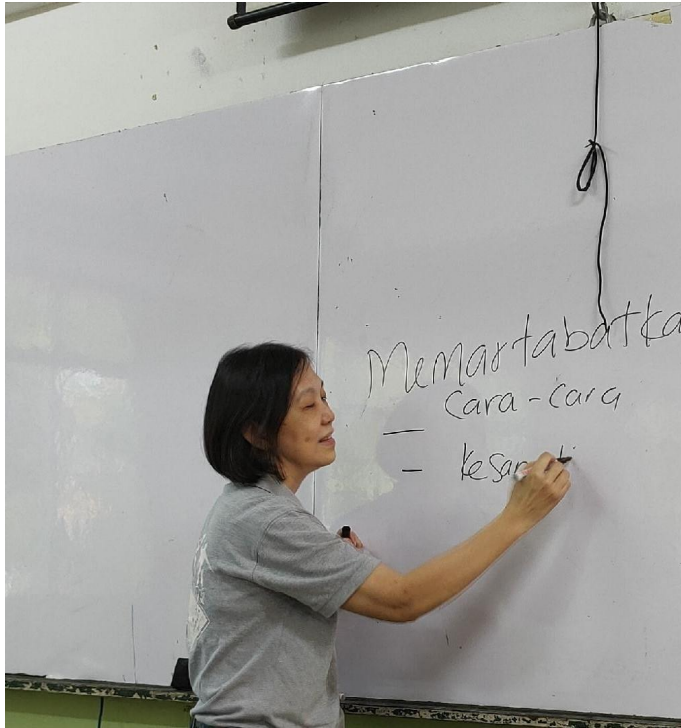 Memartabatka
- cara-cara
=